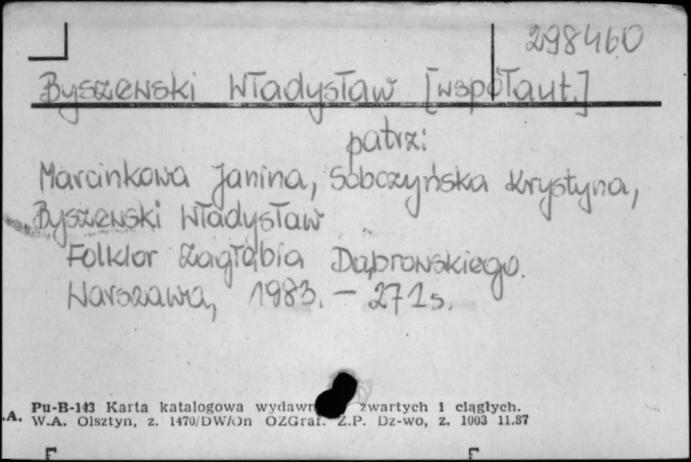 298460
Byszewski Władysław [współaut.]
patrz:
Marcinkowa Janina, Sobczyńska Krystyna,
Byszewski Władysław
Folklor Zagłębia Dąbrowskiego.
Warszawa, 1983. – 271 s.
Pu-B-143 Karta katalogowa zwartych i ciągłych.
.A. W.A. Olsztyn, z. 1470/DW/On OZGraf. Z.P. Dz-wo, z. 1003 11.87